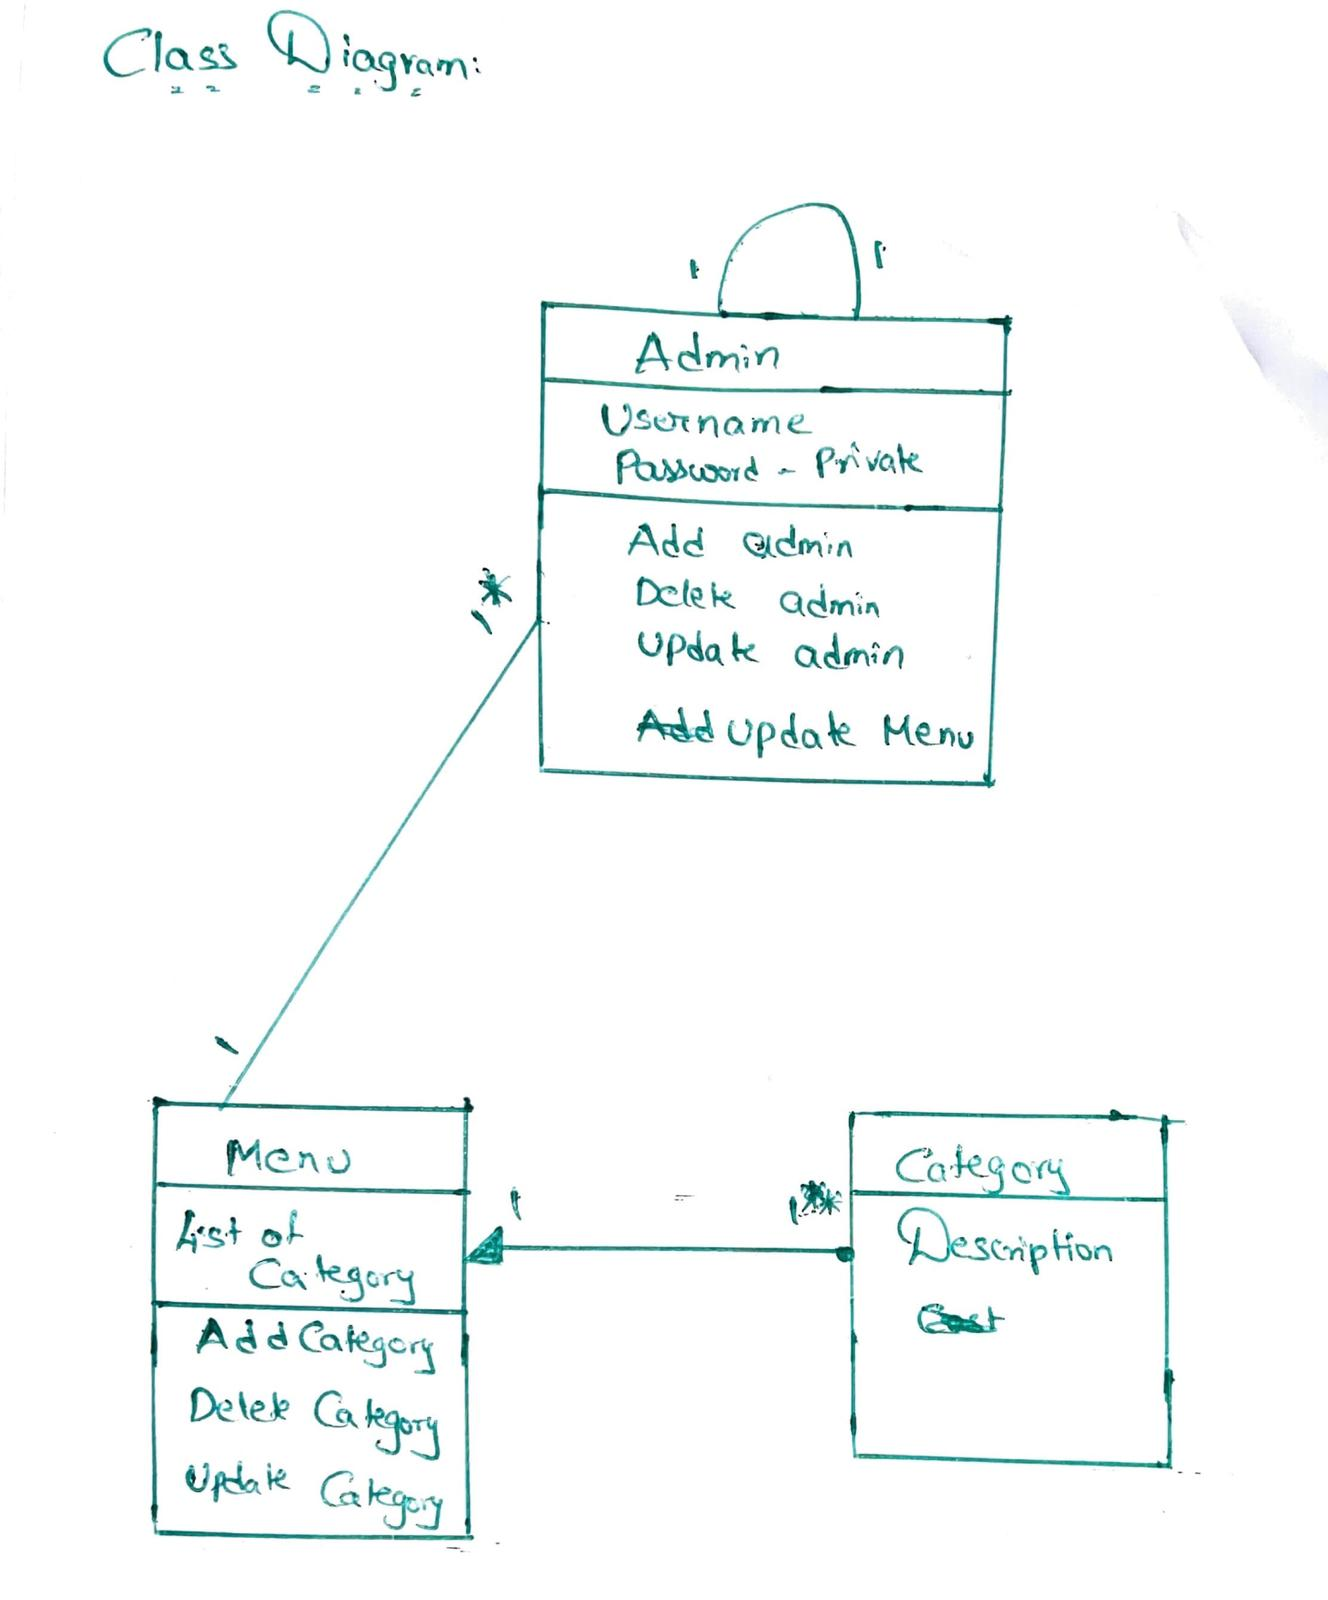 Class Diagram:
1 1
Admin
Username
Password - Private
Add admin
Delete admin
Update admin
Update Menu
*
1
1
Menu
List of
Category
Add Category
Delete Category
Update Category
1
*
Category
Description